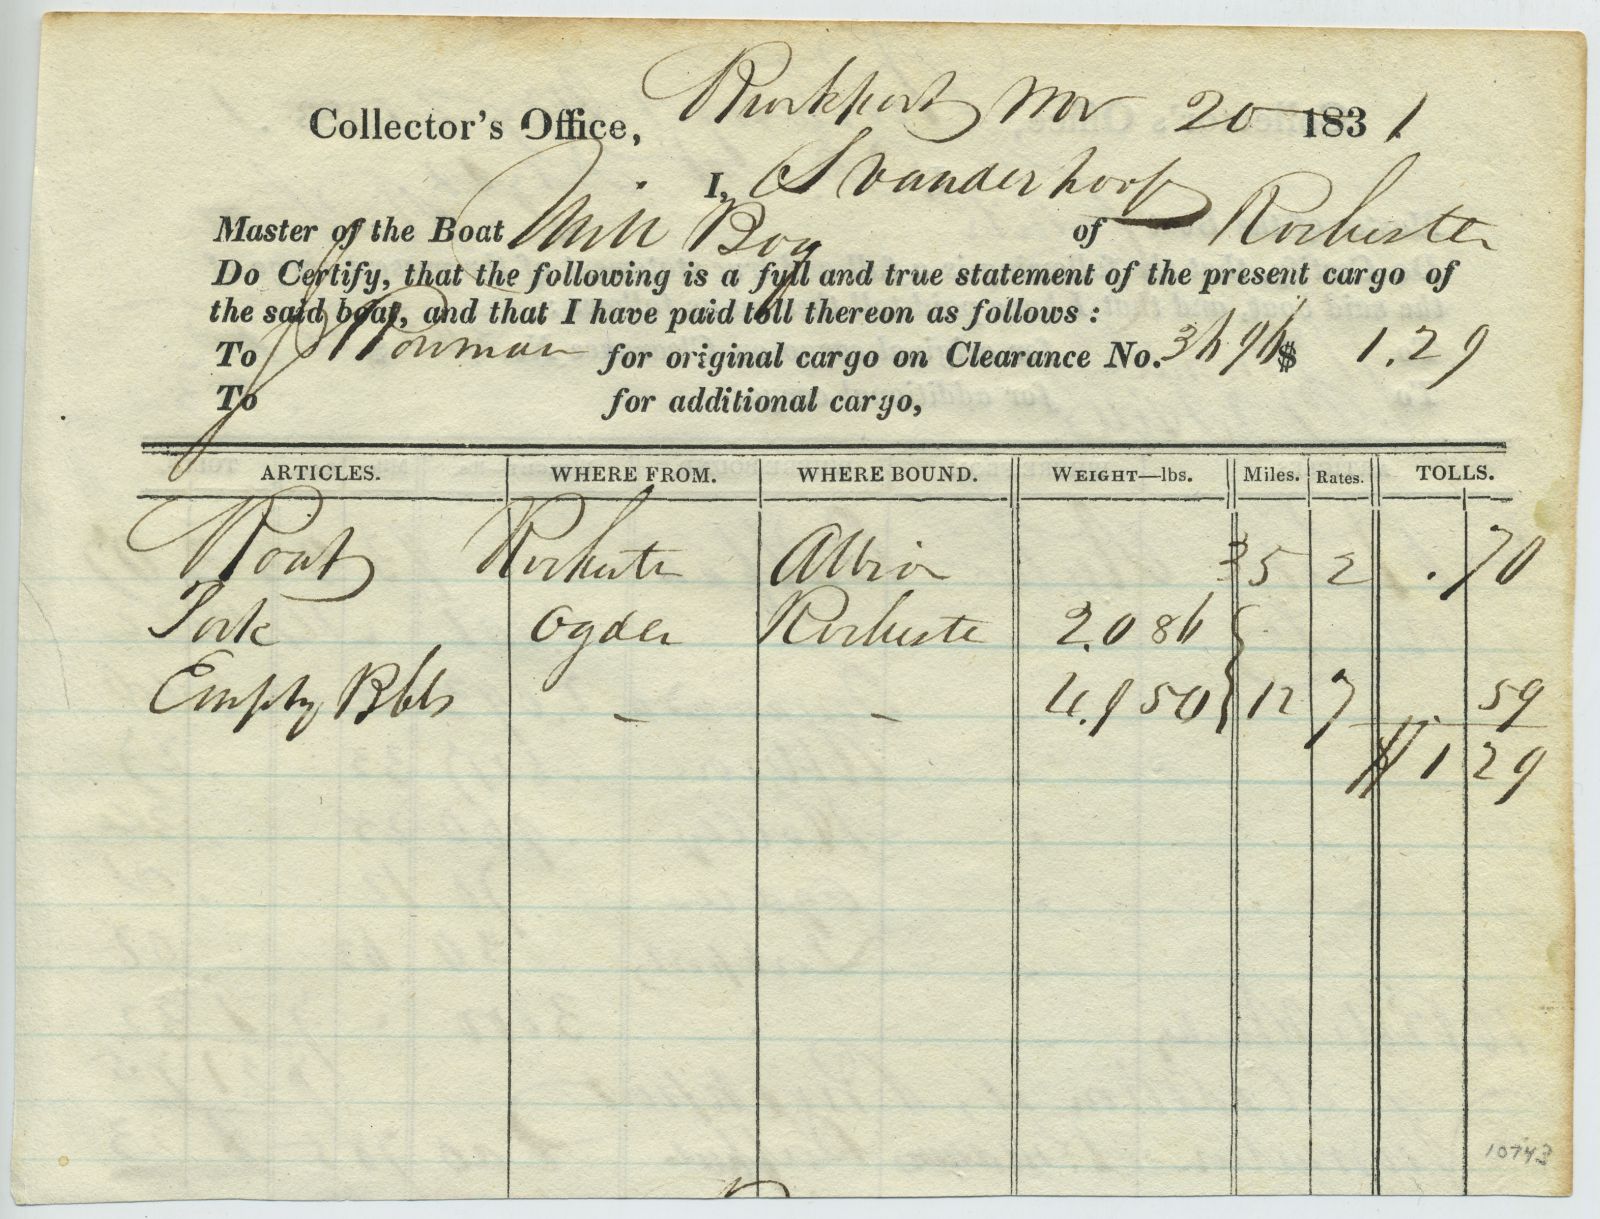 Collector's Office, Brockport Nov 20 1831
I, S Vanderhoof
Master of the Boat Mill Boy of Rochester
Do Certify, that the following is a full and true statement of the present cargo of
the said boat, and that I have paid toll thereon as follows:
To J Bowman for original cargo on Clearance No. 3696 $ 1.29
To for additional cargo,
ARTICLES. WHERE FROM. WHERE BOUND. WEIGHT—lbs. Miles. Rates. TOLLS.
Boat Rochester Albion 35 2 .70
Pork Ogden Rocheste 2.086
Empty Bbls - - 4.950 12 7 59
$1 29
10743